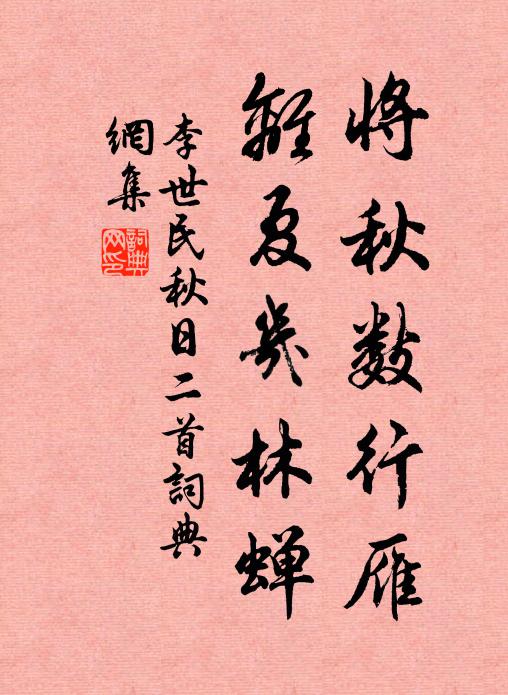 將秋數行雁
離夏幾林蟬
李世民秋日二首詞典
網集
詞典
网印